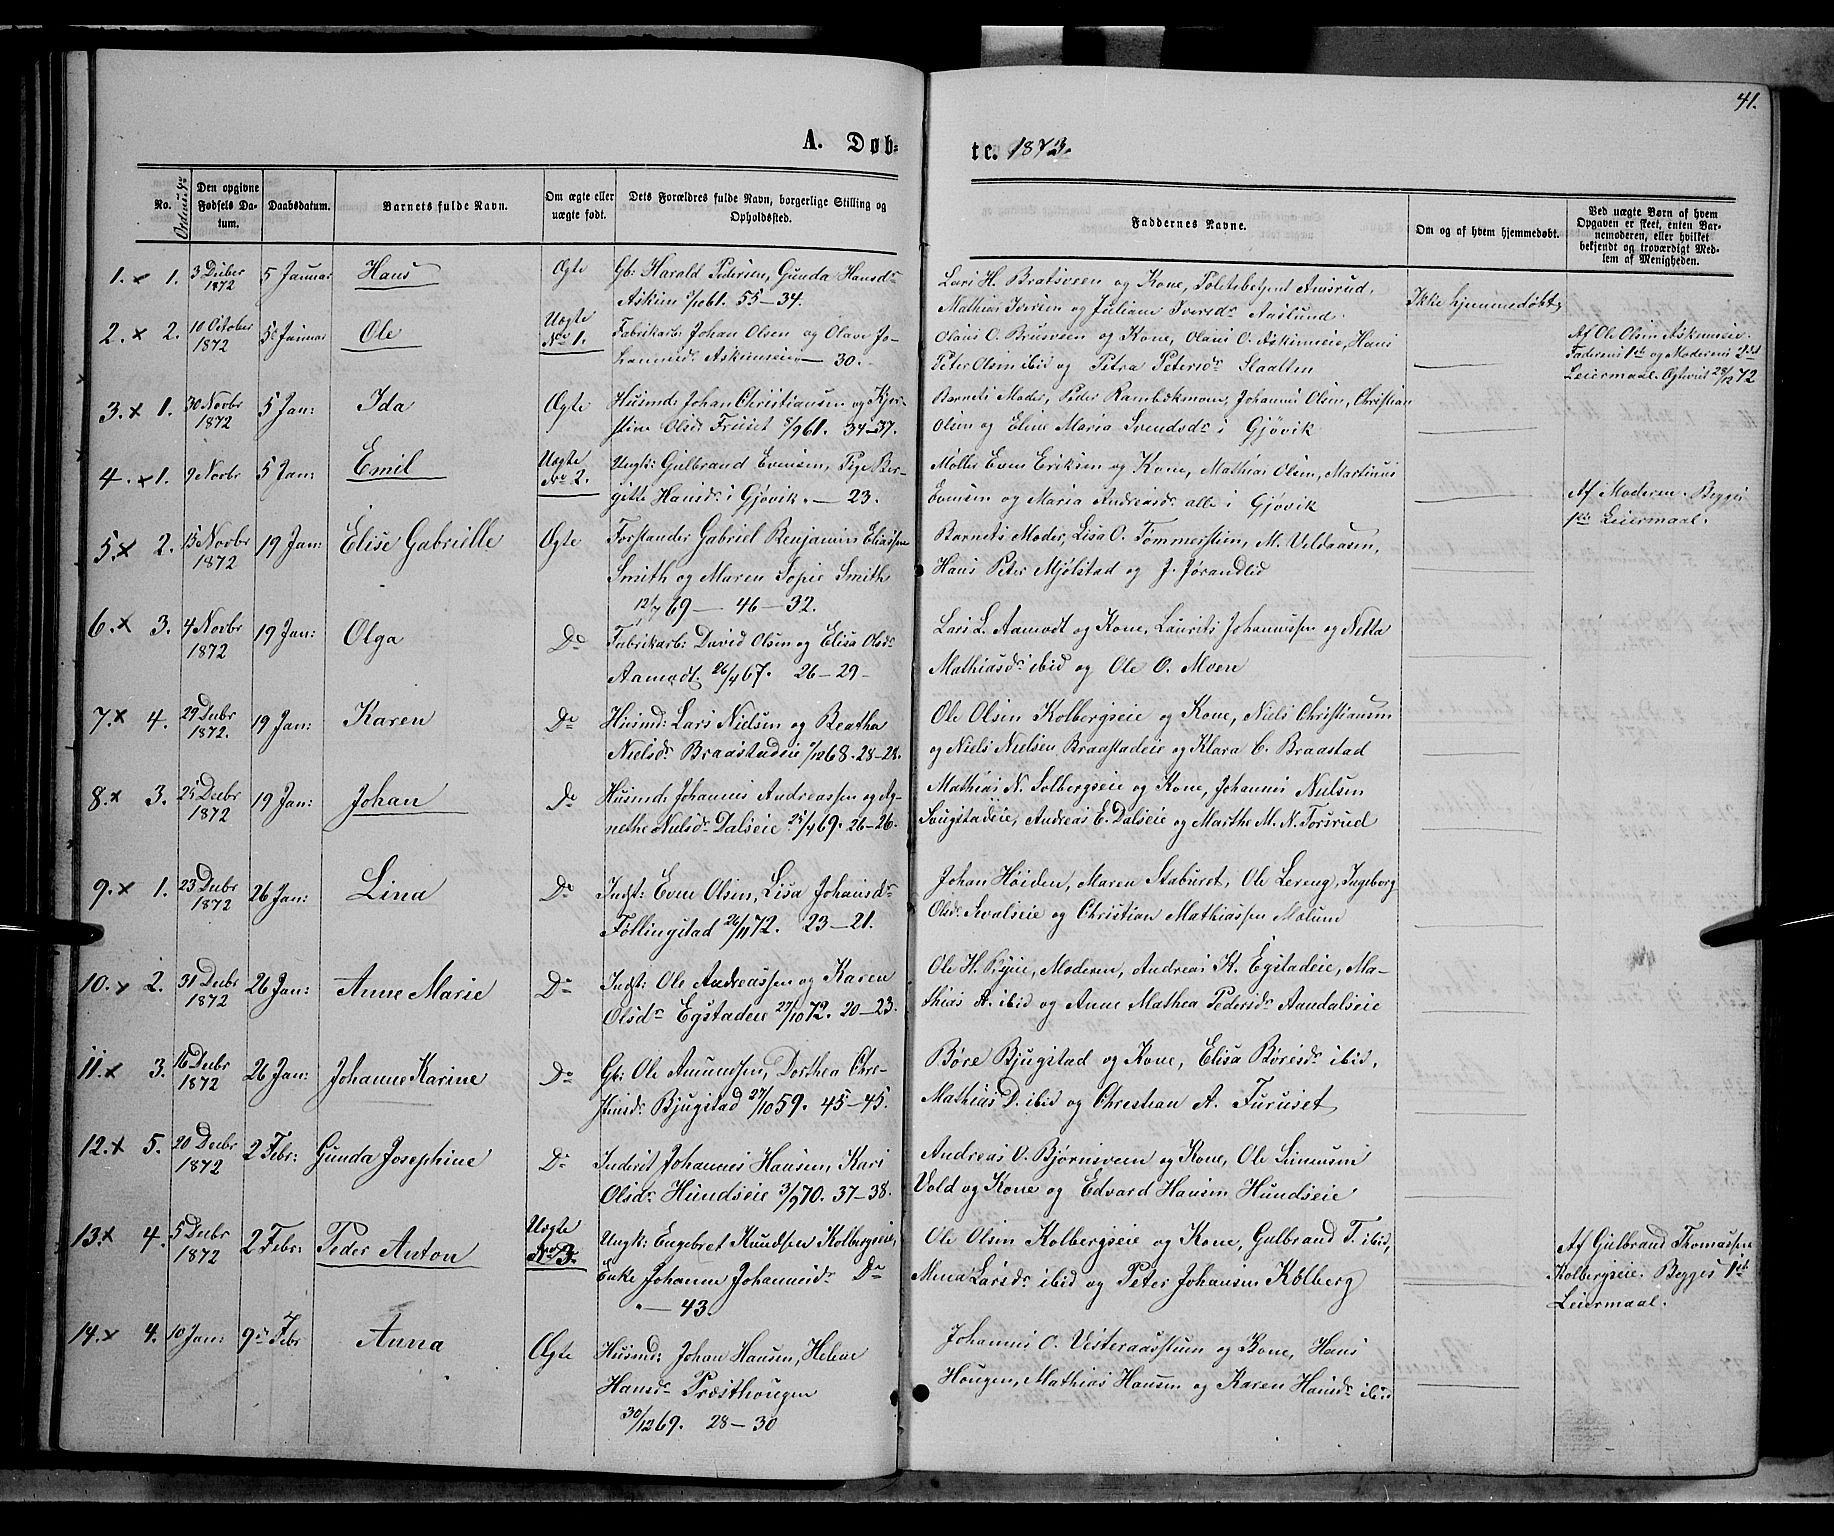 41.
A. Døb-
te. 1873.
No.
Den opgivne Fødsels Datum.
Daabsdatum.
Barnets fulde Navn.
Om ægte eller uægte født.
Dets Forældres fulde Navn, borgerlige Stilling og Opholdssted.
Faddernes Navne.
Om og af hvem hjemmedøbt.
Ved uægte Børn af hvem Opgaven er skeet, enten Barnemoderen, eller hvilket bekjendt og troværdigt Medlem af Menigheden.
1. x 1. 3 Decber 1872 5 Januar Hans Ægte
Gb: Harald Pedersen, Gunda Hansdr
Askim 61. 55-34.
Lars H. Bratsveen og Kone, Politibetjent Amrud,
Mathias Iversen og Juliane Iversdr Aaslund.
Ikke hjemmedøbt
2. x 2. 10 October 1872 5 Januar Ole Uægte No 1.
Fabrikarb: Johan Olsen og Olave Jo-
hannesdr Askimeie - 30.
Olaus O. Brusveen og Kone, Olaus O. Askimeie, Hans
Peter Olsen ibid og Petra Petersdr Staalten
Af Ole Olsen Askimeie.
Faderens 1ste og Moderens 2det
Leiermaal. 72
3. x 1. 30 Novbr 1872 5 Jan: Ida Ægte
Husmd: Johan Christiansen og Kjer-
stine Olsdr Fruset 5/961. 34-37.
Barnets Moder, Peder Rambækmoen, Johannes Olsen, Christian
Olsen og Eline Maria Svendsdr i Gjøvik
4. x 1. 9 Novbr 5 Jan: Emil Uægte No 2.
Ungk: Gulbrand Evensen, Pige Ber-
gitte Hansdr i Gjøvik. - 23.
Møller Even Eriksen og Kone, Mathias Olsen, Martinus
Evensen og Maria Andreasdr alle i Gjøvik
Af Moderen. Begges
1ste Leiermaal.
5. x 2. 13 Novbr 1872 19 Jan: Elise Gabrielle Ægte
Forstander Gabriel Benjamin Eliassen
Smith og Maren Sopie Smith
12/7 69 - 46-32.
Barnets Moder, Lisa O. Tommerstien, M. Veldaasen,
Hans Peter Mjølstad og J. Jørandlid
6. x 3. 4 Novbr 1872 19 Jan: Olga Do
Fabrikarb: David Olsen og Elisa Olsdr
Aamodt 26/467. 26-29-
Lars L. Aamodt og Kone, Laurits Johannssen og Netta
Mathiasdr ibid og Ole O. Moen
7. x 4. 29 Decbr 1872. 19 Jan: Karen Do
Husmd: Lars Nielsen og Beatha
Nielsdr Braastadeie 1/1268. 28-28.
Ole Olsen Kolbergseie og Kone, Niels Christiansen
og Niels Nielsen Braastadeie og Klara C. Braastad
8. x 3. 25 Decbr 1872 19 Jan: Johan Do
Husmd: Johannes Andreassen og Ag-
nethe Nielsdr Dalseie 25/469. 26-26.
Mathias N. Solbergseie og Kone, Johannes Nielsen
Snugstadeie, Andreas E. Dalseie og Marthe M. N. Forsrud
9. x 1. 23 Decbr 1872 26 Jan: Lina Do
Indst: Even Olsen, Lisa Johansdr
Føllingstad 26/1172. 23-21.
Johan Høiden, Maren Staburet, Ole Lereng, Ingeborg
Olsdr Sevalseie og Christian Mathiassen Molum
10. x 2. 31 Decbr 1872 26 Jan: Anne Marie Do
Indst: Ole Andreassen og Karen
Olsdr Egstadeie 27/1072. 20-23.
Ole H. Byeie, Moderen, Andreas K. Egstadeie, Ma-
thias A. ibid og Anne Mathea Pedersdr Aandalseie
11. x 3. 16 Decbr 1872 26 Jan: Johanne Karine Do
Gb: Ole Amundsen, Dorthea Chre-
stensdr Bjugstad 27/1059. 45-45.
Børe Bjugstad og Kone, Elisa Børesdr ibid,
Mathias D. ibid og Christian A. Furuset
12. x 5. 20 Decbr 1872 2 Febr: Gunda Josephine Do
Inderst Johannes Hansen, Kari
Olsdr Hundseie 3/970. 37-38.
Andreas O. Bjørnsveen og Kone, Ole Simensen
Vold og Kone og Edvard Hansen Hundseie
13. x 4. 5 Decbr 1872 2 Febr: Peder Anton Uægte No 3.
Ungk: Engebret Knudsen Kolbergseie,
Enke Johanne Johannesdr Do
- 43.
Ole Olsen Kolbergseie og Kone, Gulbrand T. ibid,
Mina Larsdr ibid og Peter Johansen Kolberg
Af Gulbrand Thomassen
Kolbergseie. Begges 1ste
Leiermaal.
14. x 4. 10 Jan: 9 Febr Anna Ægte
Husmd: Johan Hansen, Helene
Hansdr Præsthougen
30/1269. 28-30
Johannes O. Vesteraasstuen og Kone, Hans
Hougen, Mathias Hansen og Karen Hansdr ibid